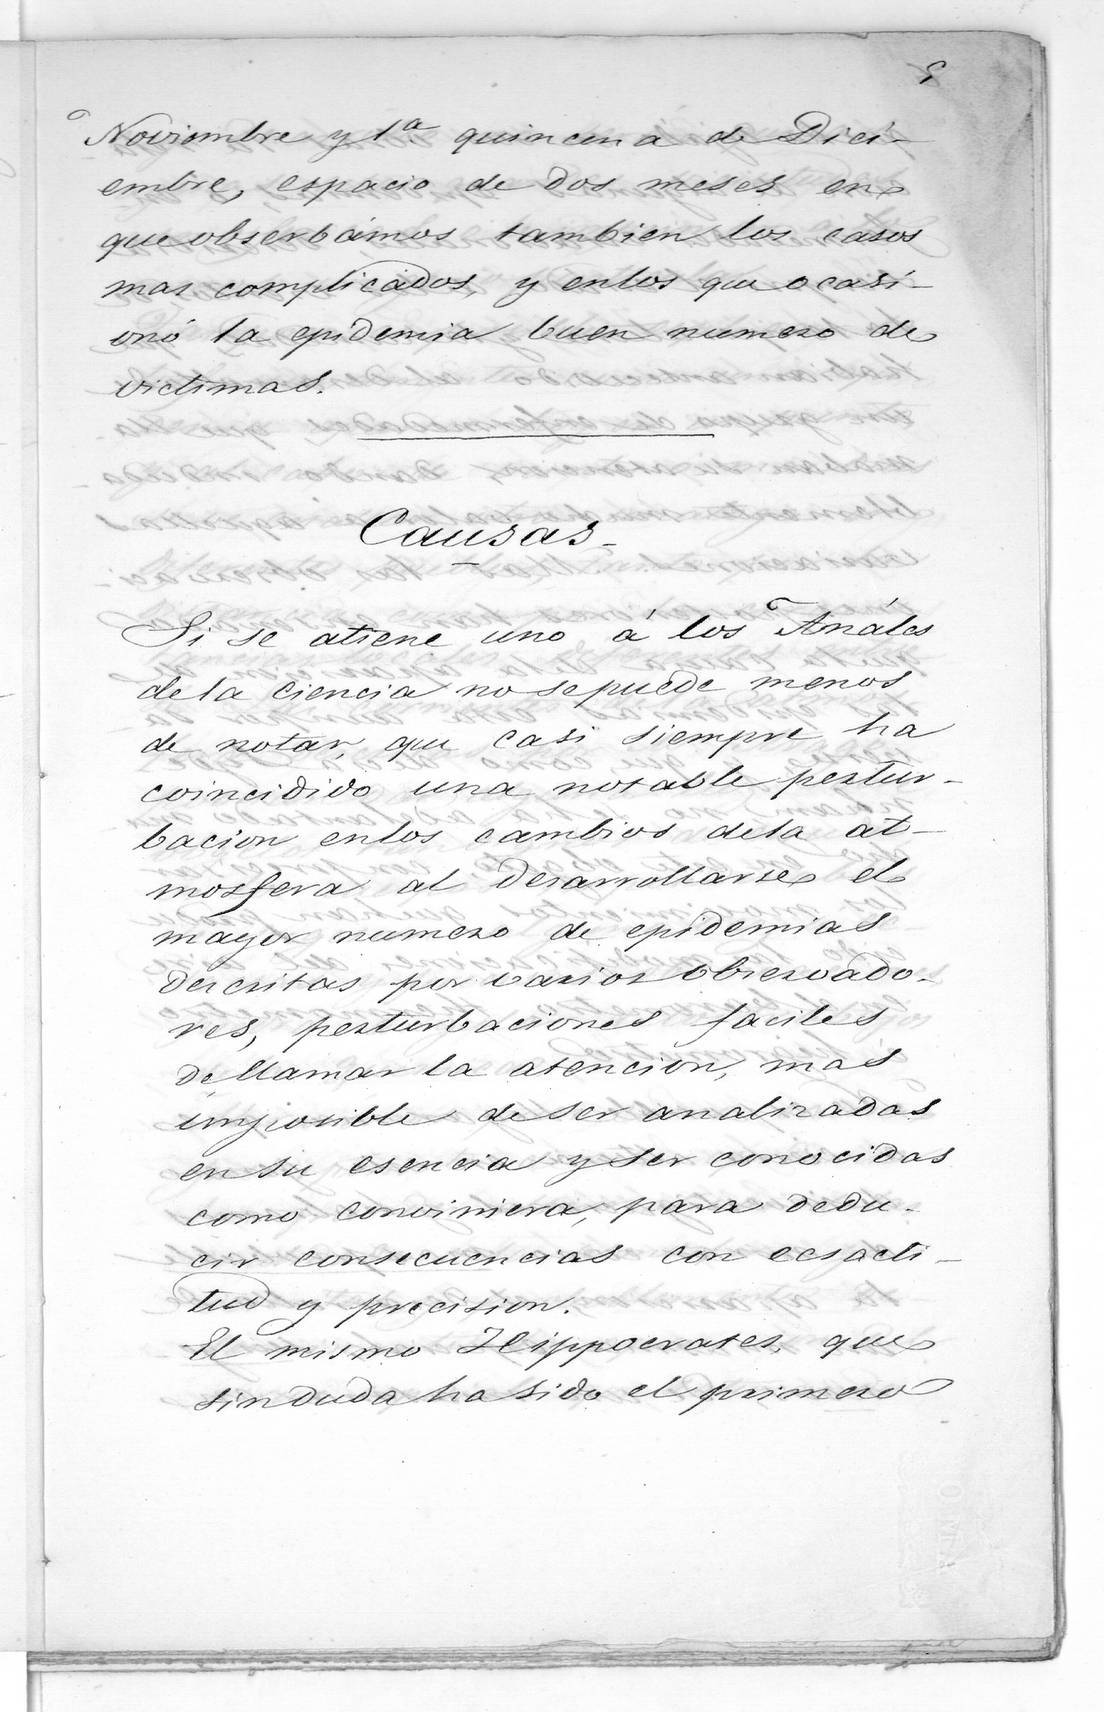 Noviembre y 1ª quincena de Dici-
embre, espacio de dos meses en
que obserbámos tambien los casos
mas complicados, y enlos que ocasi-
onó la epidemia buen numero de
victimas.
Causas-
Si se atiene uno á los Análes
dela Ciencia no sepuede menos
de notar, que casi siempre ha
coincidido una notable pertur-
bacion enlos cambios dela at-
mosfera al desarrollarse el
mayor numero de epidemias
descritas por varios observado-
res, perturbaciones faciles
dellamar la atencion, mas
imposible de ser analizadas
en su esencia y ser conocidas
como conviniera, para dedu-
cir consecuencias con ecsacti-
tud y precision.
El mismo Hippocrates, que
sinduda ha sido el primero